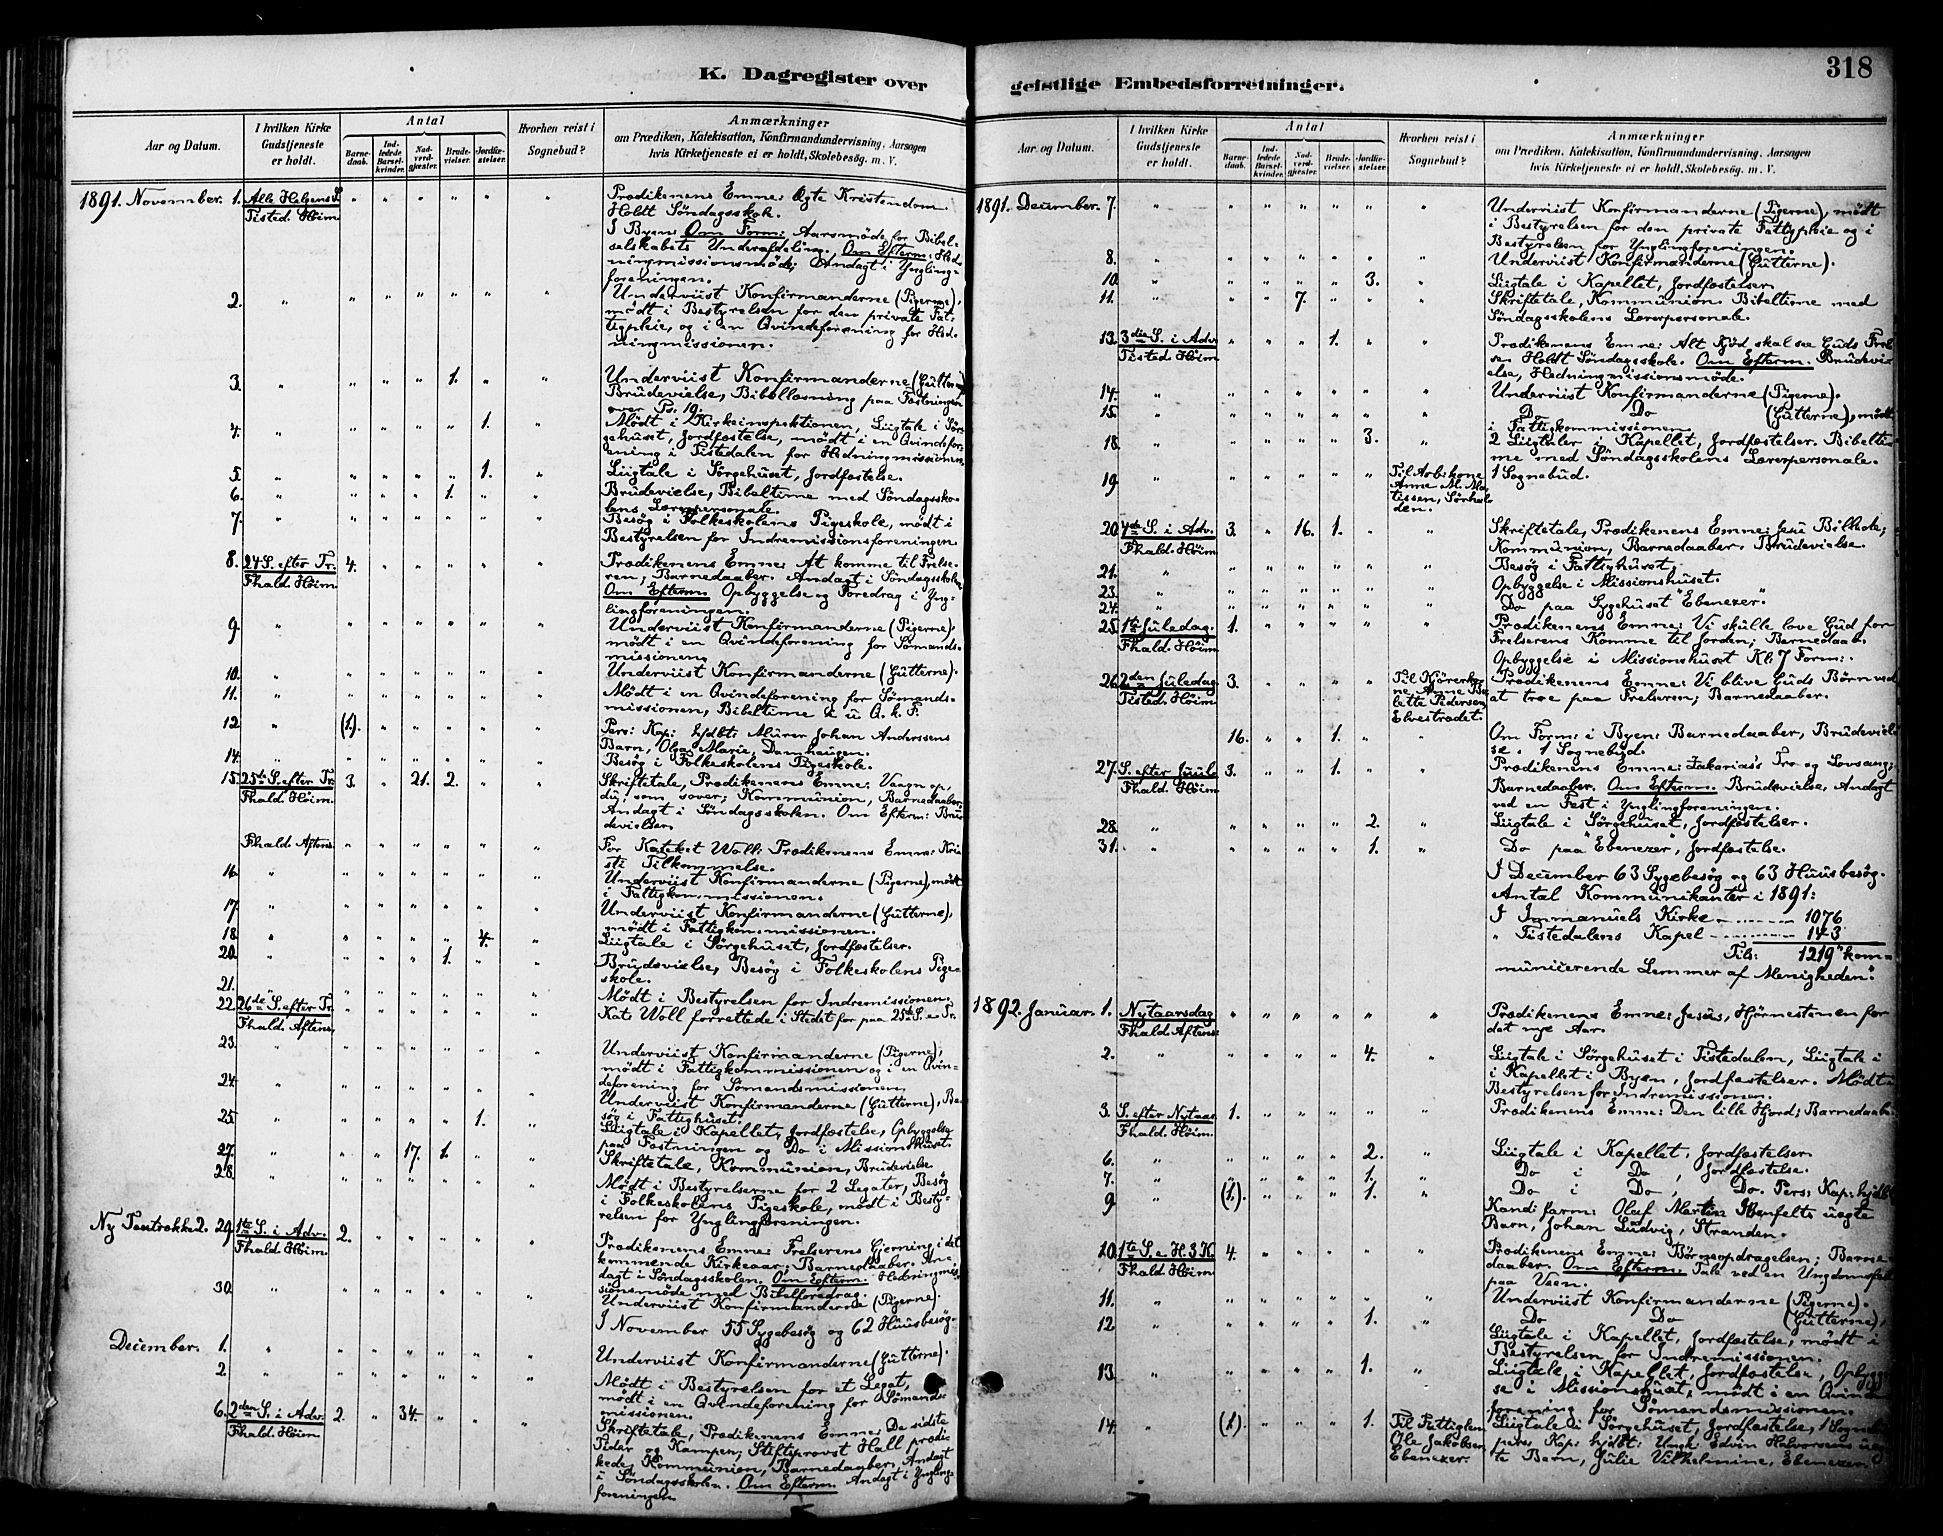 K. Dagregister over
Aar og Datum.
I hvilken Kirke Gudstjeneste er holdt.
Antal
Barnedaab.
Indledede Barselkvinder.
Nadverdgjester.
Brudevielser.
Jordfæstelser.
Hvorhen reist i Sognebud?
Anmærkninger
om Prædiken, Katekisation, Konfirmandundervisning, Aarsagen
hvis Kirketjeneste ei er holdt, Skolebesøg m. V.
1891. November. 1. Alle Helgens S. " " " " " " Prædikenens Emne: Ægte Kristendom.
Tisted. Höim Holdt Söndagsskole.
I Byens Om Form: Aarsmöde for Bibel-
selskabets Underafdeling. Om Efterm: Hed-
ningmissionsmöde; Andagt i Yngling-
foreningen.
2. " " " " " " " Underviist Konfirmanderne (Pigerne),
mödt i Bestyrelsen for den private Fat-
tigpleie, og i en Qvindeforening for Hed-
ningmissionen.
3. " " " " 1. " " Underviist Konfirmanderne (Gutterne)
Brudevielse, Bibellæsning paa Fæstningen
over Ps. 19.
4. " " " " " 1. " Mödt i Kirkeinspektionen, Liigtale i Sör-
gehuset, Jordfæstelse, mödt i en Qvindefor-
ening i Tistedalen for Hedningmissionen.
5. " " " " " 1. " Liigtale i Sörgehuset, Jordfæstelse.
6. " " " " 1. " " Brudevielse, Bibeltime med Söndagssko-
lens Lærerpersonale.
7. " " " " " " " Besög i Folkeskolens Pigeskole, mödt i
Bestyrelsen for Indremissionsforeningen.
8. 24 S. efter Tr. 4. " " " " " Prædikenens Emne: At komme til Frelse-
Fhald. Höim ren; Barnedaaber. Andagt i Söndagsskolen
Om Efterm Opbyggelse og Foredrag i Yng-
lingforeningen.
9. " " " " " " " Underviist Konfirmanderne (Pigerne),
mödt i en Qvindeforening for Sömands-
missionen.
10. " " " " " " " Underviist Konfirmanderne (Gutterne).
11. " " " " " " " Mödt i en Qvindeforening for Sömands-
missionen, Bibeltime i U. Q. k. F.
12. " (1). " " " " " Pers: Kap: hjdbt: Murer Johan Anderssens
Barn, Olga Marie, Damhaugen.
14. " " " " " " " Besög i Folkeskolens Pigeskole.
15. 25de S. efter Tr. 3. " 21. 2. " " Skriftetale, Prædikenens Emne: Vaagn op,
Fhald. Höim du, som sover; Kommunion, Barnedaaber.
Andagt i Söndagsskolen. Om Efterm: Bru-
devielser.
Fhald Aftens. " " " " " " For Kateket Woll: Prædikenens Emne: Kri-
sti Tilkommelse.
16. " " " " " " " Underviist Konfirmanderne (Pigerne), mödt
i Fattigkommissionen.
17. " " " " " " " Underviist Konfirmanderne (Gutterne),
mödt i Fattigkommissionen.
18. " " " " " 4. " Liigtale i Sörgehuset, Jordfæstelser.
20. " " " " 1. " " Brudevielse, Besög i Folkeskolens Pige-
skole.
21. " " " " " " " Mödt i Bestyrelsen for Indremissionen.
22. 26de S. efter Tr. " " " " " " Kat: Woll forrettede i Stedet for paa 25de S. e. Tr.
Fhald. Aftens.
23. " " " " " " " Underviist Konfirmanderne (Pigerne),
mödt i Fattigkommissionen og i en Qvin-
deforening for Sömandsmissionen.
24. " " " " " " " Underviist Konfirmanderne (Gutterne), Be-
sög i Fattighuset.
25. " " " " " 1. " Liigtale i Kapellet, Jordfæstelse, Opbyggelse
paa Fæstningen og Do i Missionshuset.
27. " " " 17. 1. " " Skriftetale, Kommunion, Brudevielse.
28. " " " " " " " Mödt i Bestyrelserne for 2 Legater, Besög
i Folkeskolens Pigeskole, mödt i Besty-
relsen for Ynglingforeningen.
Ny Textrække 2. 29. 1ste S. i Adv. 2. " " " " " Prædikenens Emne: Frelserens Gjerning i det
Fhald. Höim kommende Kirkeaar; Barnedaaber. An-
dagt i Söndagsskolen. Om Efterm. Hedningmis-
sionsmöde med Bibelforedrag.
30. " " " " " " " Underviist Konfirmanderne (Pigerne).
I November 55 Sygebesög og 62 Huusbesög.
December. 1. " " " " " " " Underviist Konfirmanderne (Gutterne).
2. " " " " " " " Mödt i Bestyrelsen for et Legat,
mödt i en Qvindeforening for Sömands-
missionen.
6. 2den S. i Adv. 2. " 34. " " " Skriftetale, Prædikenens Emne: De sidste
Fhald. Höim Tider og Kampen; Stiftsprovst Hall prædi-
kede, Kommunion, Barnedaaber. Andagt
i Söndagsskolen. Om Efterm. Andagt i Yngling-
foreningen.
geistlige Embedsforretninger.
318
Aar og Datum.
I hvilken Kirke Gudstjeneste er holdt.
Antal
Barnedaab.
Indledede Barselkvinder.
Nadverdgjester.
Brudevielser.
Jordfæstelser.
Hvorhen reist i Sognebud?
Anmærkninger
om Prædiken, Katekisation, Konfirmandundervisning, Aarsagen
hvis Kirketjeneste ei er holdt, Skolebesøg m. V.
1891. December. 7. " " " " " " " Underviist Konfirmanderne (Pigerne), mödt
i Bestyrelsen for den private Fattigpleie og i
Bestyrelsen for Ynglingforeningen.
8. " " " " " " " Underviist Konfirmanderne (Gutterne).
10. " " " " " 3. " Liigtale i Kapellet, Jordfæstelser.
11. " " " 7. " " " Skriftetale, Kommunion. Bibeltime med
Söndagsskolens Lærerpersonale.
13. 3die S. i Adv. " " " 1. " " Prædikenens Emne: Alt Kjöd skal see Guds Frel-
Tisted. Höim se. Holdt Söndagsskole. Om Efterm. Brudevi-
else, Hedningmissionsmöde.
14. " " " " " " " Underviist Konfirmanderne (Pigerne).
15. " " " " " " " Do Do (Gutterne), mödt
i Fattigkommissionen.
18. " " " " " 3. " 2 Liigtaler i Kapellet, Jordfæstelser. Bibelti-
me med Söndagsskolens Lærerpersonale.
19. " " " " " " Til Arb:kone 1 Sognebud.
Anne M. Ma-
tissen, Sörhal-
den.
20. 4de S. i Adv. 3. " 16. 1. " " Skriftetale, Prædikenens Emne: Jesu Billede;
Fhald. Höim Kommunion, Barnedaaber. Brudevielse.
21. " " " " " " " Besög i Fattighuset.
23. " " " " " " " Opbyggelse i Missionshuset.
24. " " " " " " " Do paa Sygehuset "Ebenezer".
25. 1ste Juledag. 1. " " " " " Prædikenens Emne: Vi skulle love Gud for
Fhald. Höim Frelserens Komme til Jorden; Barnedaab.
Opbyggelse i Missionshuset Kl: 7 Form:.
26. 2den Juledag 3. " " " " Til Kjörerko- Prædikenens Emne: Vi blive Guds Börn ved
Tisted. Höim ne Anne Be- at troe paa Frelseren; Barnedaaber.
lette Pedersen,
Ekestrædet.
16. " " 1. " " Om Form: i Byen: Barnedaaber, Brudeviel-
se. 1 Sognebud.
27. S. efter Juul 3. " " 1. " " Prædikenens Emne: Zakarias's Tro og Lovsang;
Fhald. Höim Barnedaaber. Om Efterm. Brudevielse, Andagt
ved en Fest i Ynglingforeningen.
28. " " " " " 2. " Liigtale i Sörgehuset, Jordfæstelser.
31. " " " " " 1. " Do paa "Ebenezer", Jordfæstelse.
I December 63 Sygebesög og 63 Huusbesög.
Antal Kommunikanter i 1891:
I Immanuels Kirke 1076
" Tistedalens Kapel 143
Tils: 1219 "kom-
municerende Lemmer af Menigheden".
1892. Januar. 1. Nytaarsdag " " " " " " Prædikenens Emne: Jesus, Hjörnestenen for
Fhald Aftens: det nye Aar.
2. " " " " " 4. " Liigtale i Sörgehuset i Tistedalen, Liigtale i
i Kapellet i Byen, Jordfæstelser. Mödt i
Bestyrelsen for Indremissionen.
3. S. efter Nytaar 1. " " " " " Prædikenens Emne: Den lille Hjord; Barnedaab.
Fhald. Höim.
6. " " " " " 2. " Liigtale i Kapellet, Jordfæstelser.
7. " " " " " 1. " Do i Do, Jordfæstelse.
9. " (1.) " " " 1. " Do i Do, Do. Pers: Kap: hjdbt
Kand: farm: Olaf Martin uægte
Barn, Johan Ludvig, Stranden.
10. 1ste S. e. H. 3 K. 4. " " " " " Prædikenens Emne: Börneopdragelsen; Barne-
Fhald. Höim daaber. Om Efterm. Tale ved en Ungdomsfest
paa Veden.
11. " " " " " " " Underviist Konfirmanderne (Pigerne).
12. " " " " " 1. " Do Do (Gutterne),
Liigtale i Kapellet, Jordfæstelse, mödt i
Bestyrelsen for Indremissionen.
13. " " " " " 1. " Liigtale i Kapellet, Jordfæstelse, Opbyggel-
se i Missionshuset, mödt i en Qvinde-
forening for Sömandsmissionen.
14. " (1.) " " " 1. Til Fattiglem Liigtale i Sörgehuset, Jordfæstelse, 1 Sognebud,
Ole Jakobsen pers: Kap: hjdbt: Ungk: Edvin Halvorsens uæg-
Ebenezer. te Barn, Julie Vilhelmine, Ebenezer.